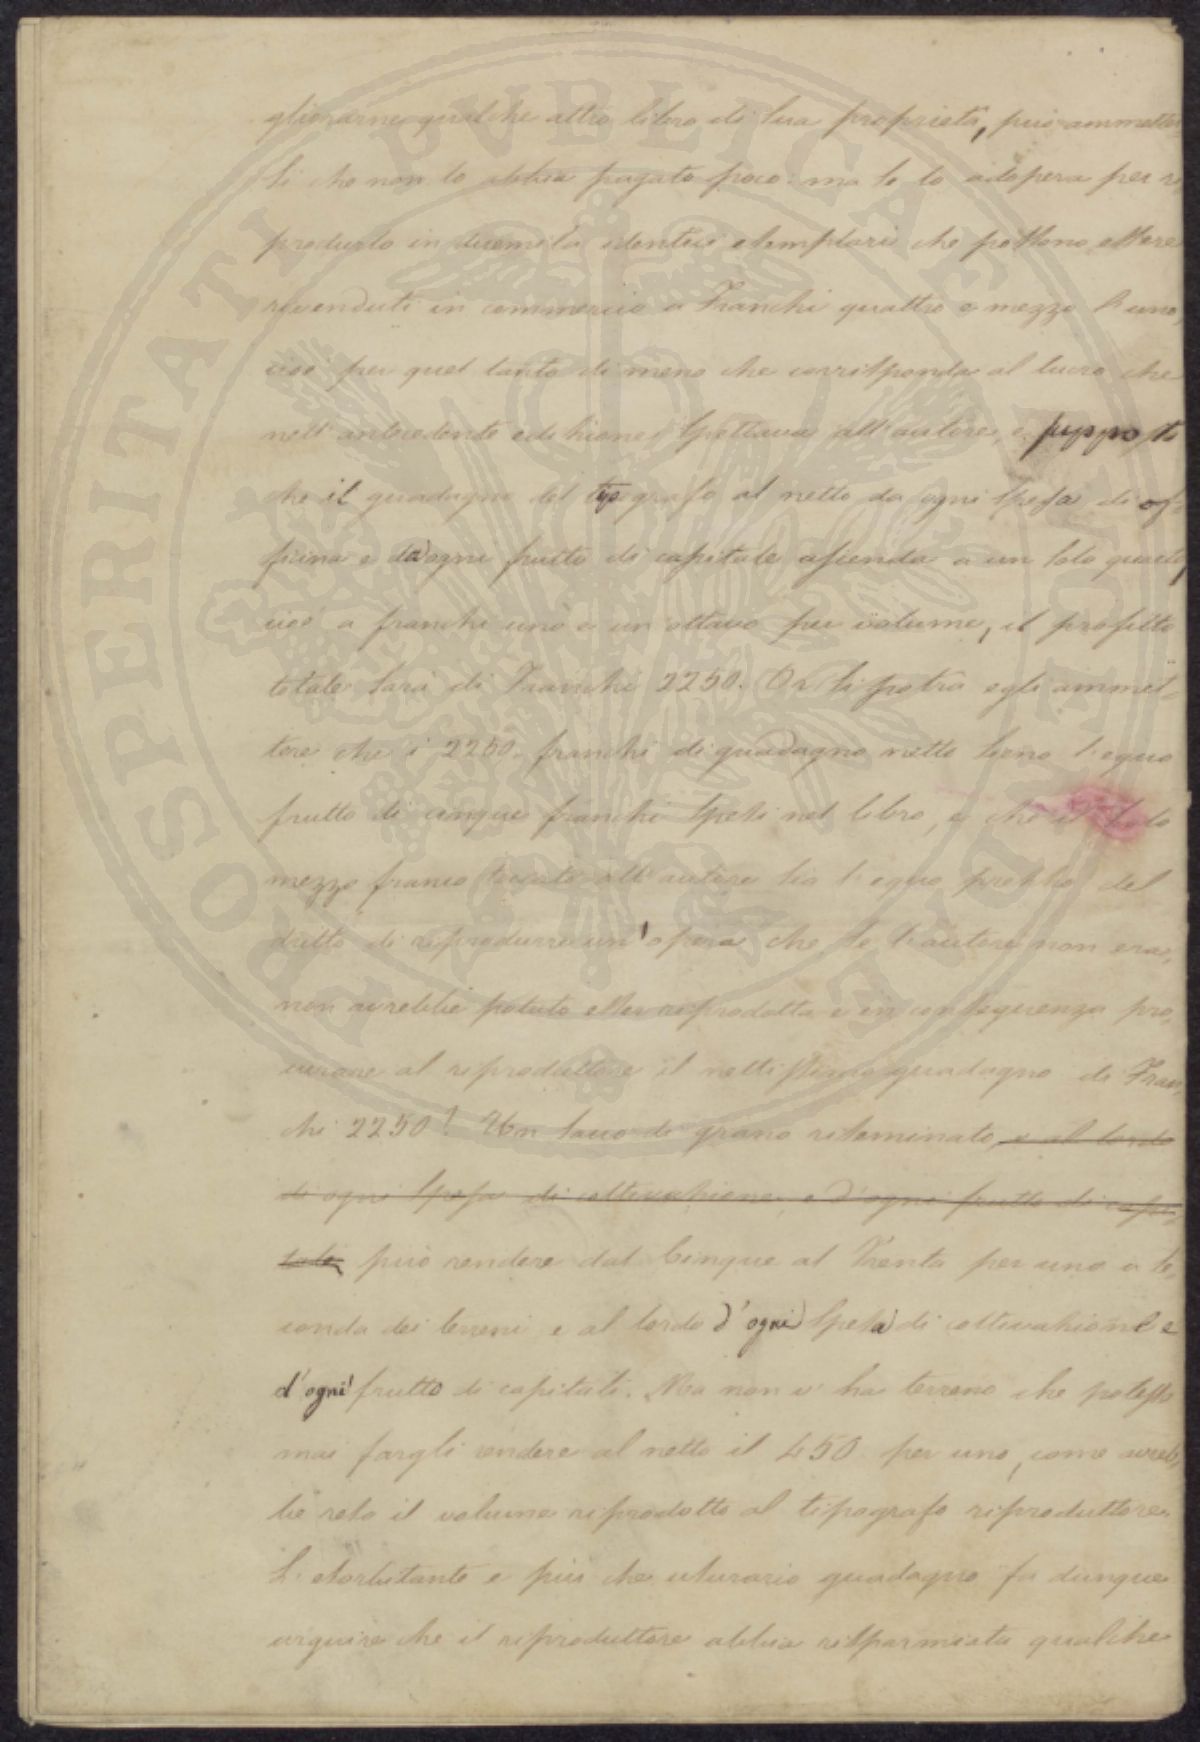 glierarne qualche altro libro di sua proprietà, può ammetter
si che non lo abbia pagato poco: ma se lo adopera per ri
produrlo in duemila identici esemplari che possono essere
rivenduti in commercio a Franchi quattro e mezzo l'uno,
cioè per quel tanto di meno che corrisponda al lucro che
nell'antecedente edizione spettava all'autore, e supposto
che il guadagno del tipografo al netto da ogni spesa di of-
ficina e da ogni frutto di capitale ascenda a un solo quarto,
cioè a franchi uno e un ottavo per volume, il profitto
totale sarà di Franchi 2250. Or si potrà egli ammet-
tere che i 2250. franchi di guadagno netto sieno l'equo
frutto di cinque franchi spesi nel libro, e che il solo
mezzo franco toccato all'autore sia l'equo prezzo del
dritto di riprodurre un'opera che, se l'autore non era,
non avrebbe potuto esser riprodotta e in conseguenza pro-
curare al riproduttore il nettissimo guadagno di Fran-
chi 2250? Un sacco di grano riseminato, e al lordo
di ogni spesa di coltivazione, e d'ogni frutto di capi-
tale, può rendere dal Cinque al Trenta per uno a se-
conda dei terreni e al lordo d'ogni spesa di coltivazione e
d'ogni frutto di capitali. Ma non v'ha terreno che potesse
mai fargli rendere al netto il 450 per uno, come avreb-
be reso il volume riprodotto al tipografo riproduttore.
L'esorbitante e più che usurario guadagno fa dunque
arguire che il riproduttore abbia risparmiata qualche